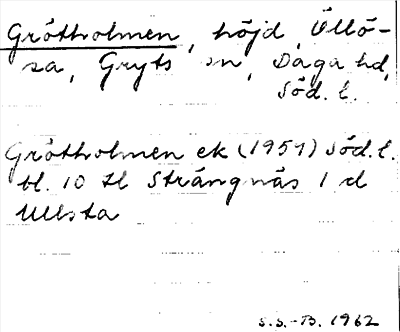 Grötholmen, höjd, Öllö-
sa, Gryts sn, Daga hd,
Söd. l.
Grötholmen ek (1951) Söd. l.
bl. 10 tl Strängnäs 1 d
Ullsta
S.S.-B. 1962